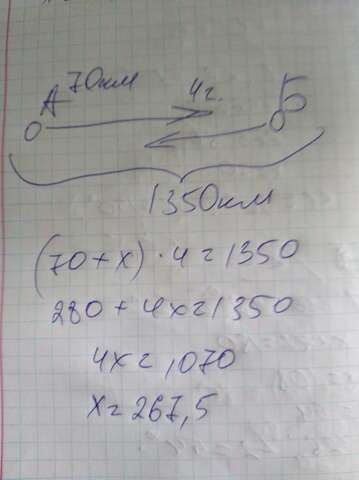 70км
А 4г. Б
1350км
(70+х)·4=1350
280+4х=1350
4х=1070
х=267,5